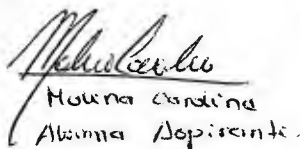 Molina Carolina
Alumna Aspirante.